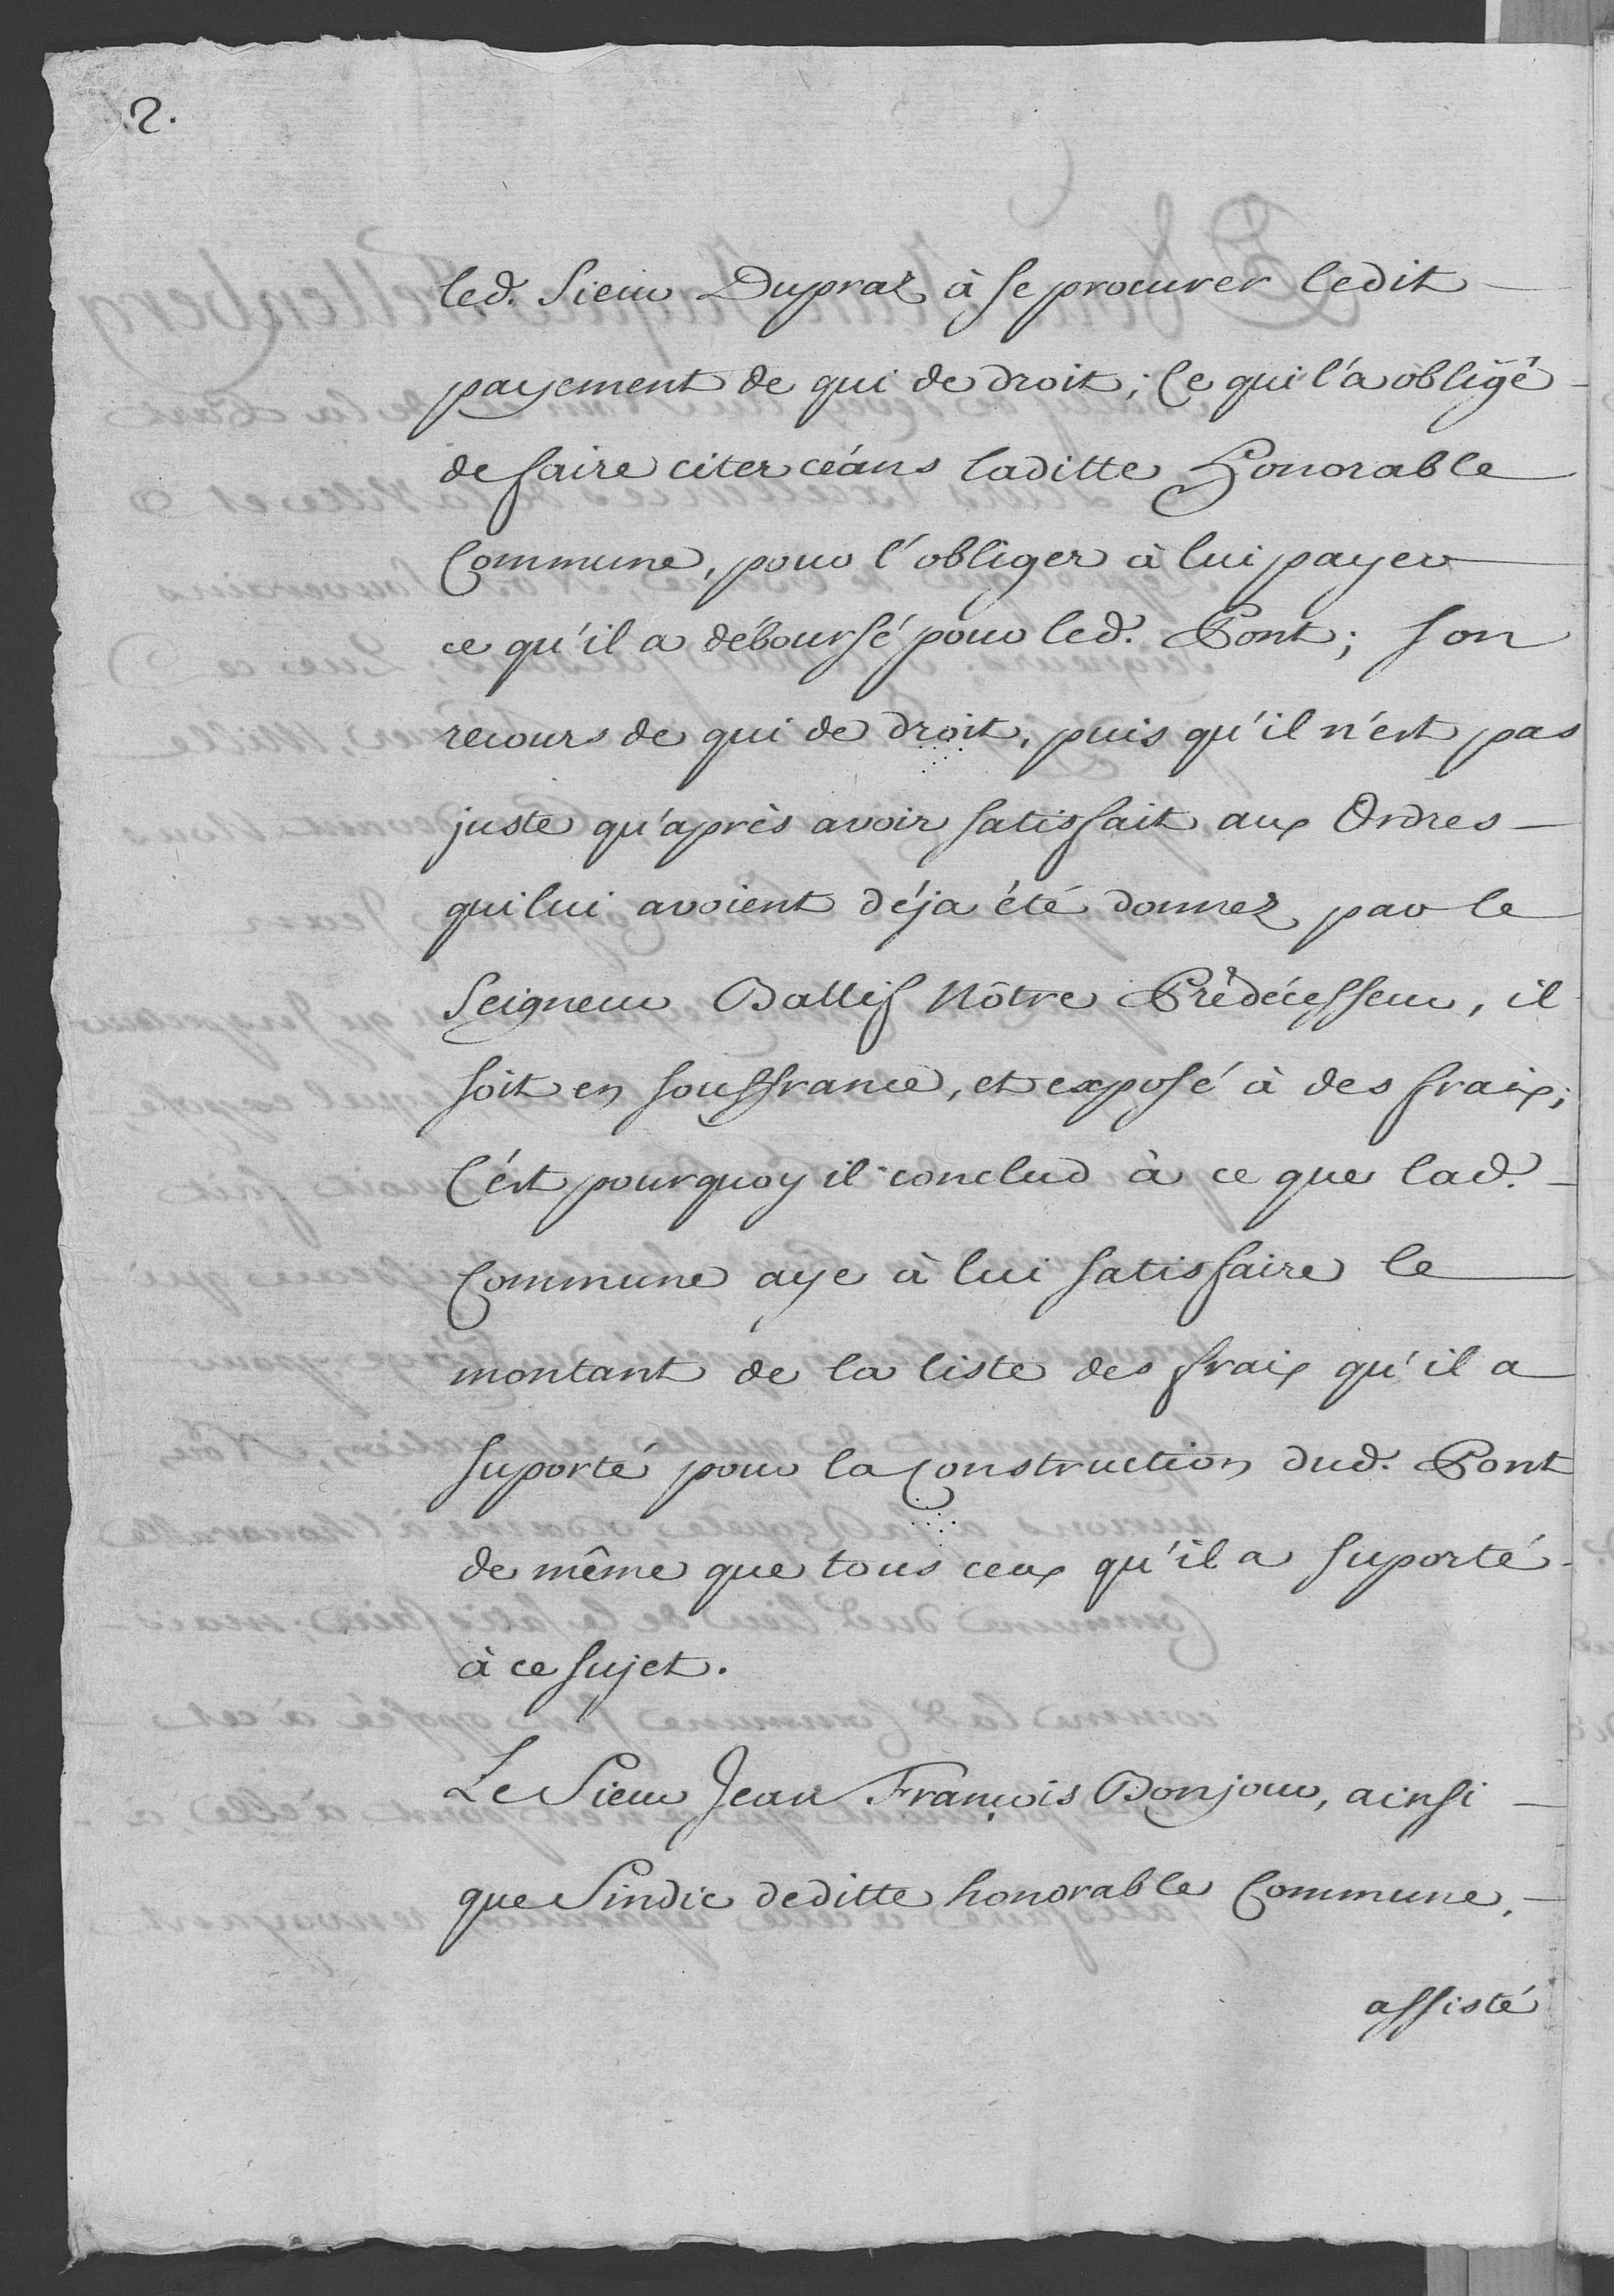 2.
led. Sieur Dupraz à se procurer ledit
payement de qui de droit; Ce qui l'a obligé
de faire citer céans laditte Honorable
Commune, pour l'obliger à lui payer
ce qu'il a déboursé pour led. Pont; son
recours de qui de droit, puis qu'il n'est pas
juste qu'après avoir satisfait aux Ordres
qui lui avoient déja été donnez par le
Seigneur Ballif Nôtre Prédécesseur, il
soit en souffrance, et exposé à des fraix;
C'est pourquoy il conclud à ce que lad.
Commune aye à lui satisfaire le
montant de la liste des fraix qu'il a
suporté pour la Construction dud. Pont
de même que tous ceux qu'il a suporté
à ce sujet.
Le Sieur Jean François Bonjour, ainsi
que Sindic deditte honorable Commune,
assisté